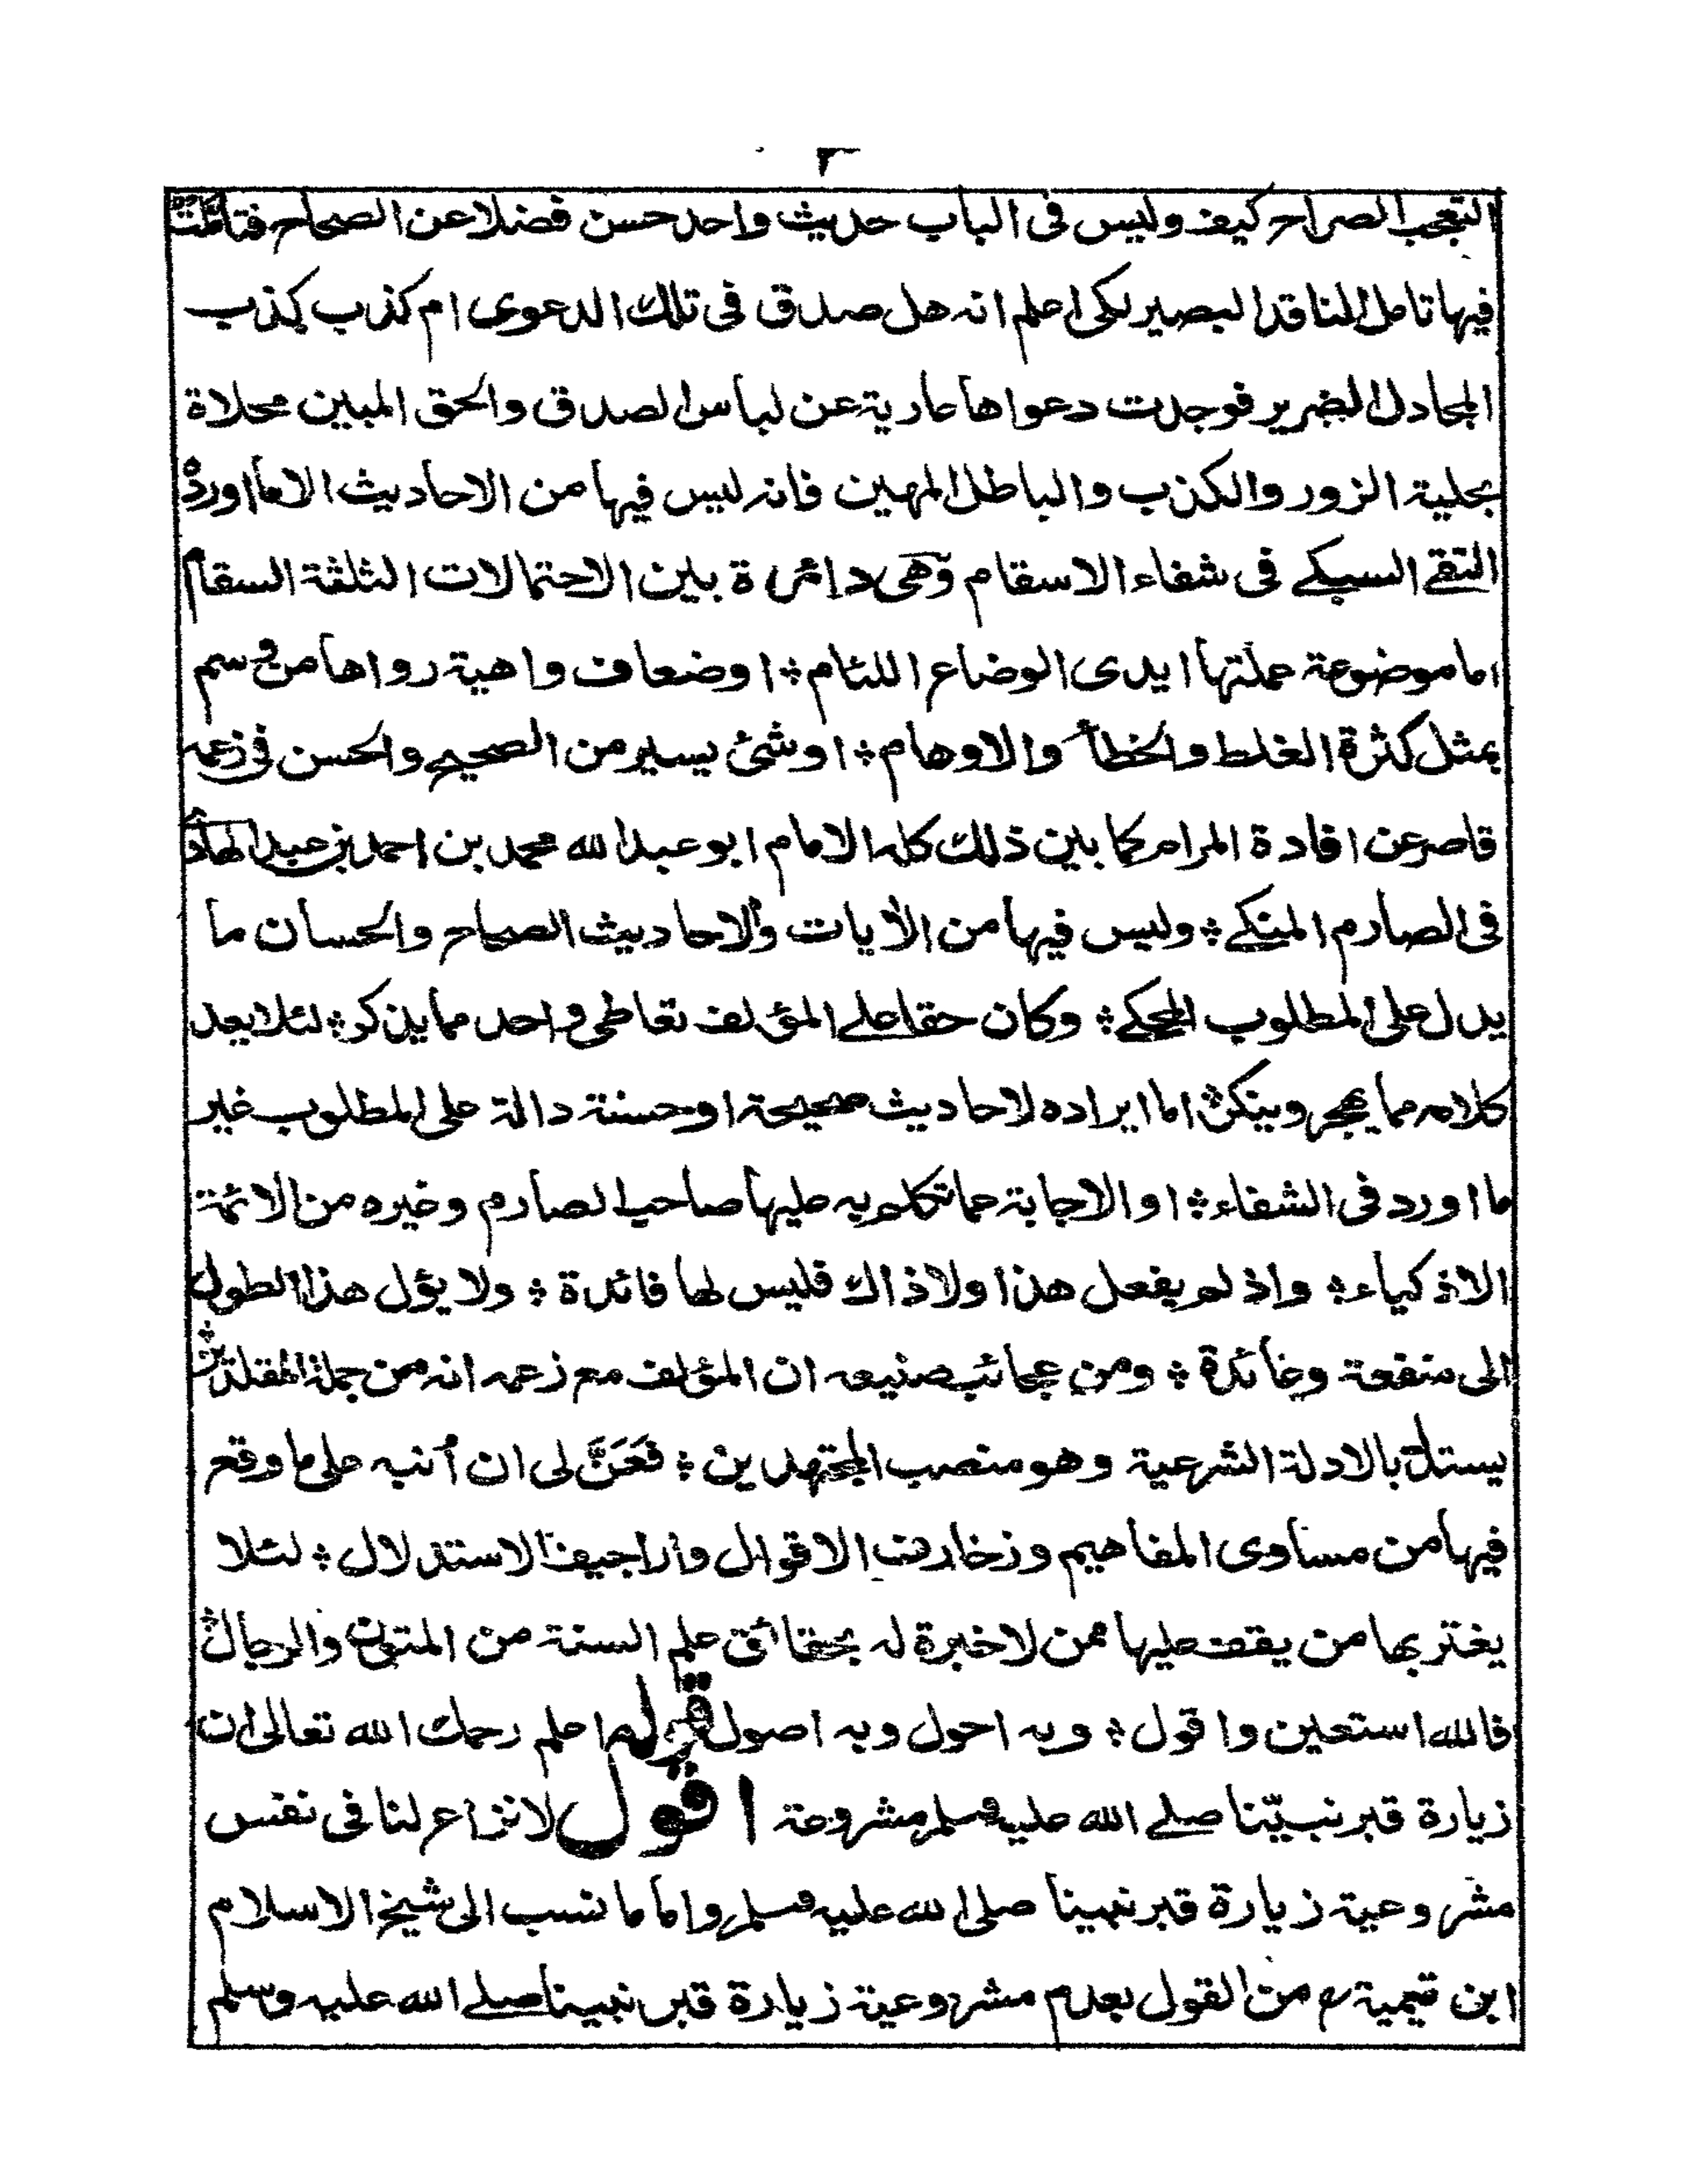 ٣
التعجب الصراح كيف وليس فى الباب حديث واحد حسن فضلا عن الصحاح فتاملت
فيها تامل الناقد البصير لكى اعلم انه هل صدق فى تلك الدعوى ام كذب كذب
المجادل الضرير فوجدت دعواها عارية عن لباس الصدق والحق المبين محلاة
بحلية الزور والكذب والباطل المهين فانه ليس فيها من الاحاديث الا ما اورده
التقے السبكے فى شفاء الاسقام وهى دائرة بين الاحتمالات الثلثة السقام
اما موضوعة عملتها ايدى الوضاع اللئام ۞ او ضعاف واهية رواها من وسم
بمثل كثرة الغلط والخطأ والاوهام ۞ او شئ يسير من الصحيح والحسن فى زعمه
قاصر عن افادة المرام كما بين ذلك كله الامام ابو عبد الله محمد بن احمد بن عبد الهادى
فى الصارم المنكے ۞ وليس فيها من الأيات والاحاديث الصحاح والحسان ما
يدل على المطلوب المحكے ۞ وكان حقا علے المؤلف تعاطى واحد مما يذكر ۞ لئلا يعد
كلامه مما يهجر وينكر ۞ اما ايراده لاحاديث صحيحة او حسنة دالة على المطلوب غير
ما اورد فى الشفاء ۞ او الاجابة عما تكلم به عليها صاحب الصارم وغيره من الائمة
الاذكياء ۞ واذ لم يفعل هذا ولا ذاك فليس لها فائدة ۞ ولا يؤل هذا الطول
الى منفعة وعائدة ۞ ومن عجائب صنيعه ان المؤلف مع زعمه انه من جملة المقلدين ۞
يستدل بالادلة الشرعية وهو منصب المجتهدين ۞ فَعَنَّ لى ان أنبه على ما وقع
فيها من مساوى المفاهيم وزخارف الاقوال واراجيف الاستدلال ۞ لئلا
يغتر بها من يقف عليها ممن لا خبرة له بحقائق علم السنة من المتون والرجال ۞
فالله استعين واقول ۞ وبه احول وبه اصول قوله اعلم رحمك الله تعالى ان
زيارة قبر نبيّنا صلے الله عليه وسلم مشروعة اقول لا نزاع لنا فى نفس
مشروعية زيارة قبر نبينا صلى الله عليه وسلم واما ما نسب الى شيخ الاسلام
ابن تيمية رح من القول بعدم مشروعية زيارة قبر نبينا صلے الله عليه وسلم